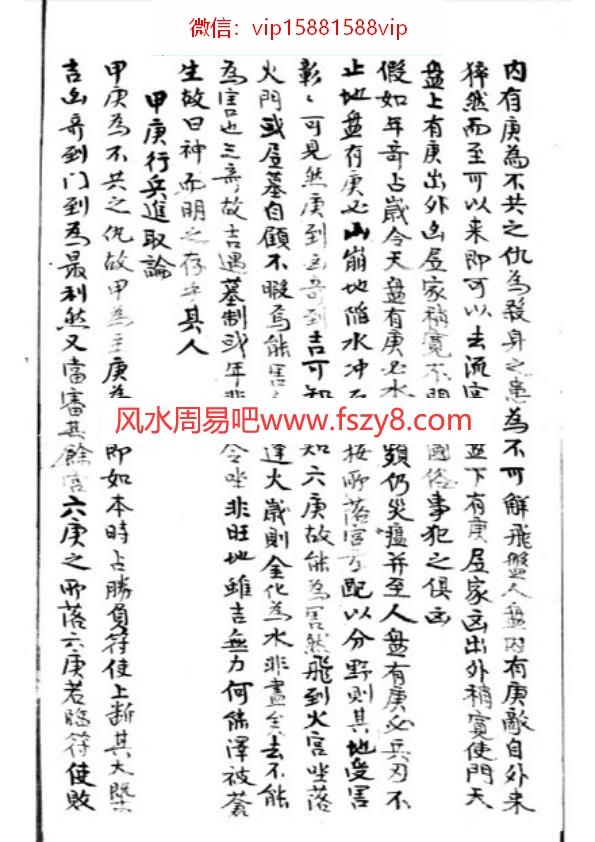 微信：vip15881588vip
内有庚為不共之仇為殺身之患為不可解飛盤人盤内有庚敵自外来
猝然而至可以来即可以去流宫盤下有庚居家凶出外稍寛使門天
盤上有庚出外凶居家稍寛不問國俗事犯之俱凶
假如年奇占歲令天盤有庚必水類仍災瘟并至人盤有庚必兵刃不
止地盤有庚必山崩地陷水冲石按所落宫方配以分野則其地受害
彰〻可見然庚到凶奇到吉可知六庚故能為害然飛到火宫坐落
火門或居墓自顧不暇焉能害逢火歲則金化為水非盡矣去不能
為害也三奇故吉遇墓制或年非令坐非旺地雖吉無力何能澤被蒼
生故曰神而明之存乎其人
甲庚行兵進取論
甲庚為不共之仇故甲為主庚為即如本時占勝負符使上断其大槩
吉凶奇到门到為最利然又當審其餘宫六庚之所落六庚若臨符使敗
风水周易吧www.fszy8.com